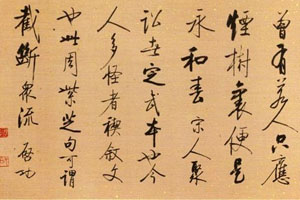 曾有人只應
煙樹裏便是
永和春宋人聚
訟者定武本也今
人多怪者禊敘文
也此周紫芝句可謂
截斷衆流 啟功